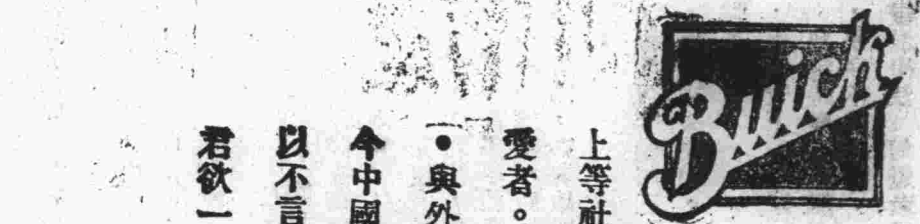 Buick
上等社
愛者。
●與外
今中國
以不言
君欲一